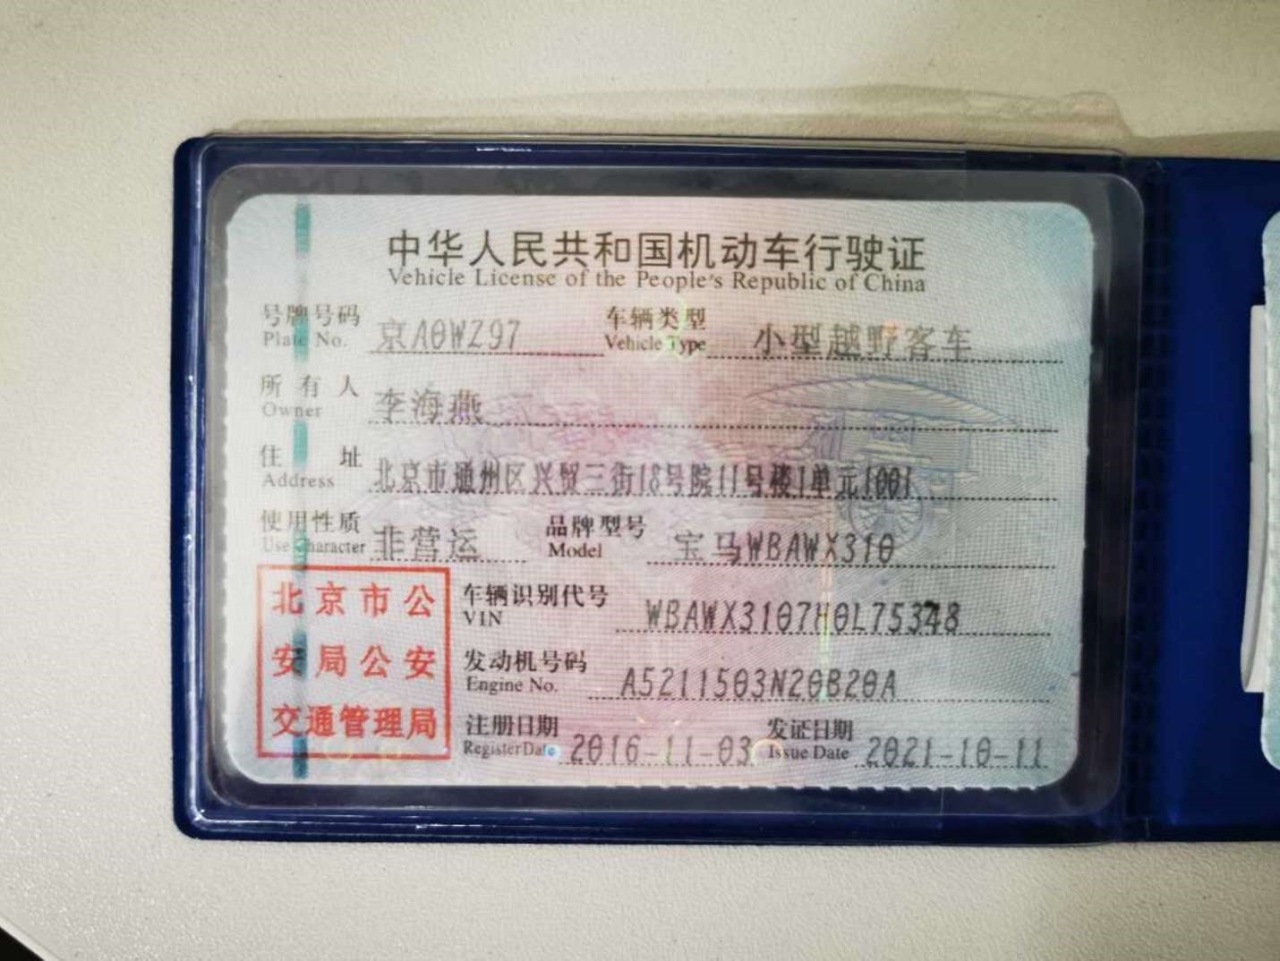 中华人民共和国机动车行驶证
Vehicle License of the People's Republic of China
号牌号码 京A0WZ97 车辆类型 小型越野客车
Plate No. Vehicle Type
所有人 李海燕
Owner
住址 北京市通州区兴贸三街18号院11号楼1单元1001
Address
使用性质 非营运 品牌型号 宝马WBAWX310
Use Character Model
北京市公
安局公安
交通管理局
车辆识别代号 WBAWX3107H0L75348
VIN
发动机号码 A5211503N20B20A
Engine No.
注册日期 2016-11-03 发证日期 2021-10-11
Register Date Issue Date